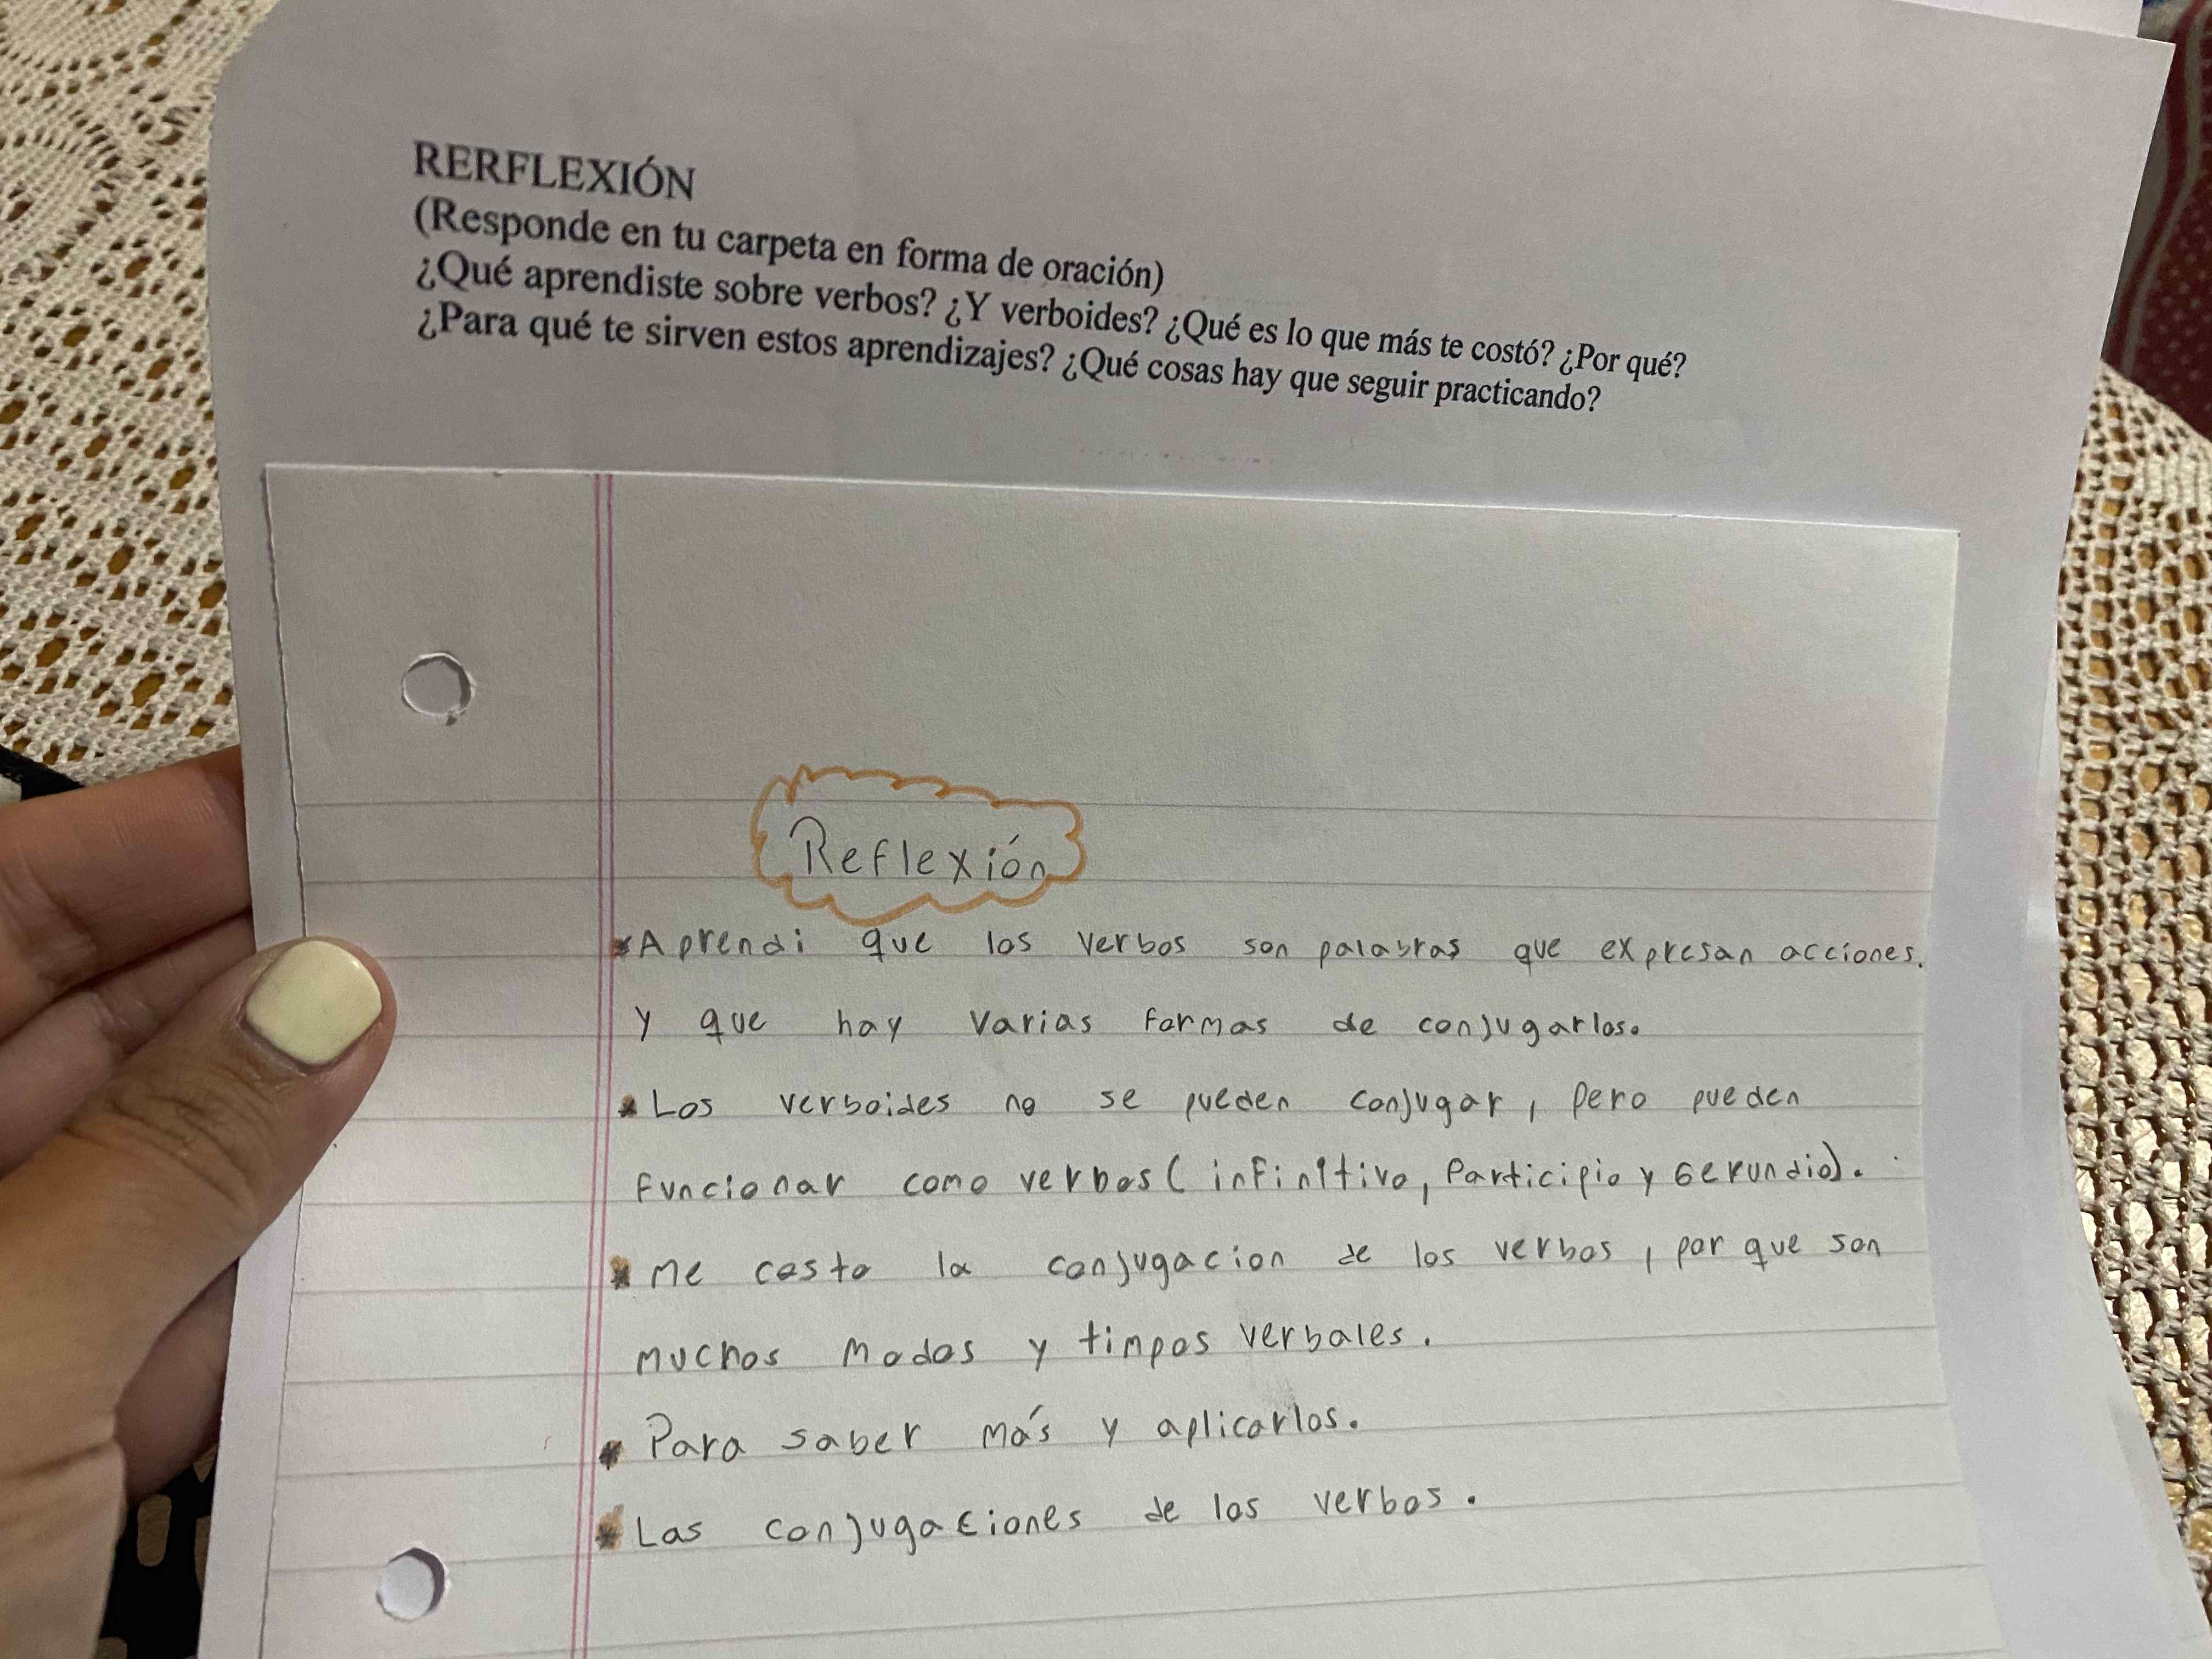 RERFLEXIÓN
(Responde en tu carpeta en forma de oración)
¿Qué aprendiste sobre verbos? ¿Y verboides? ¿Qué es lo que más te costó? ¿Por qué?
¿Para qué te sirven estos aprendizajes? ¿Qué cosas hay que seguir practicando?
Reflexión
*Aprendi que los verbos son palabras que expresan acciones.
y que hay varias formas de conjugarlos.
*Los verboides no se pueden conjugar, pero pueden
funcionar como verbos (infinitivo, Participio y Gerundio).
*Me costo la conjugacion de los verbos, por que son
muchos modos y timpos verbales.
*Para saber más y aplicarlos.
*Las conjugaciones de los verbos.